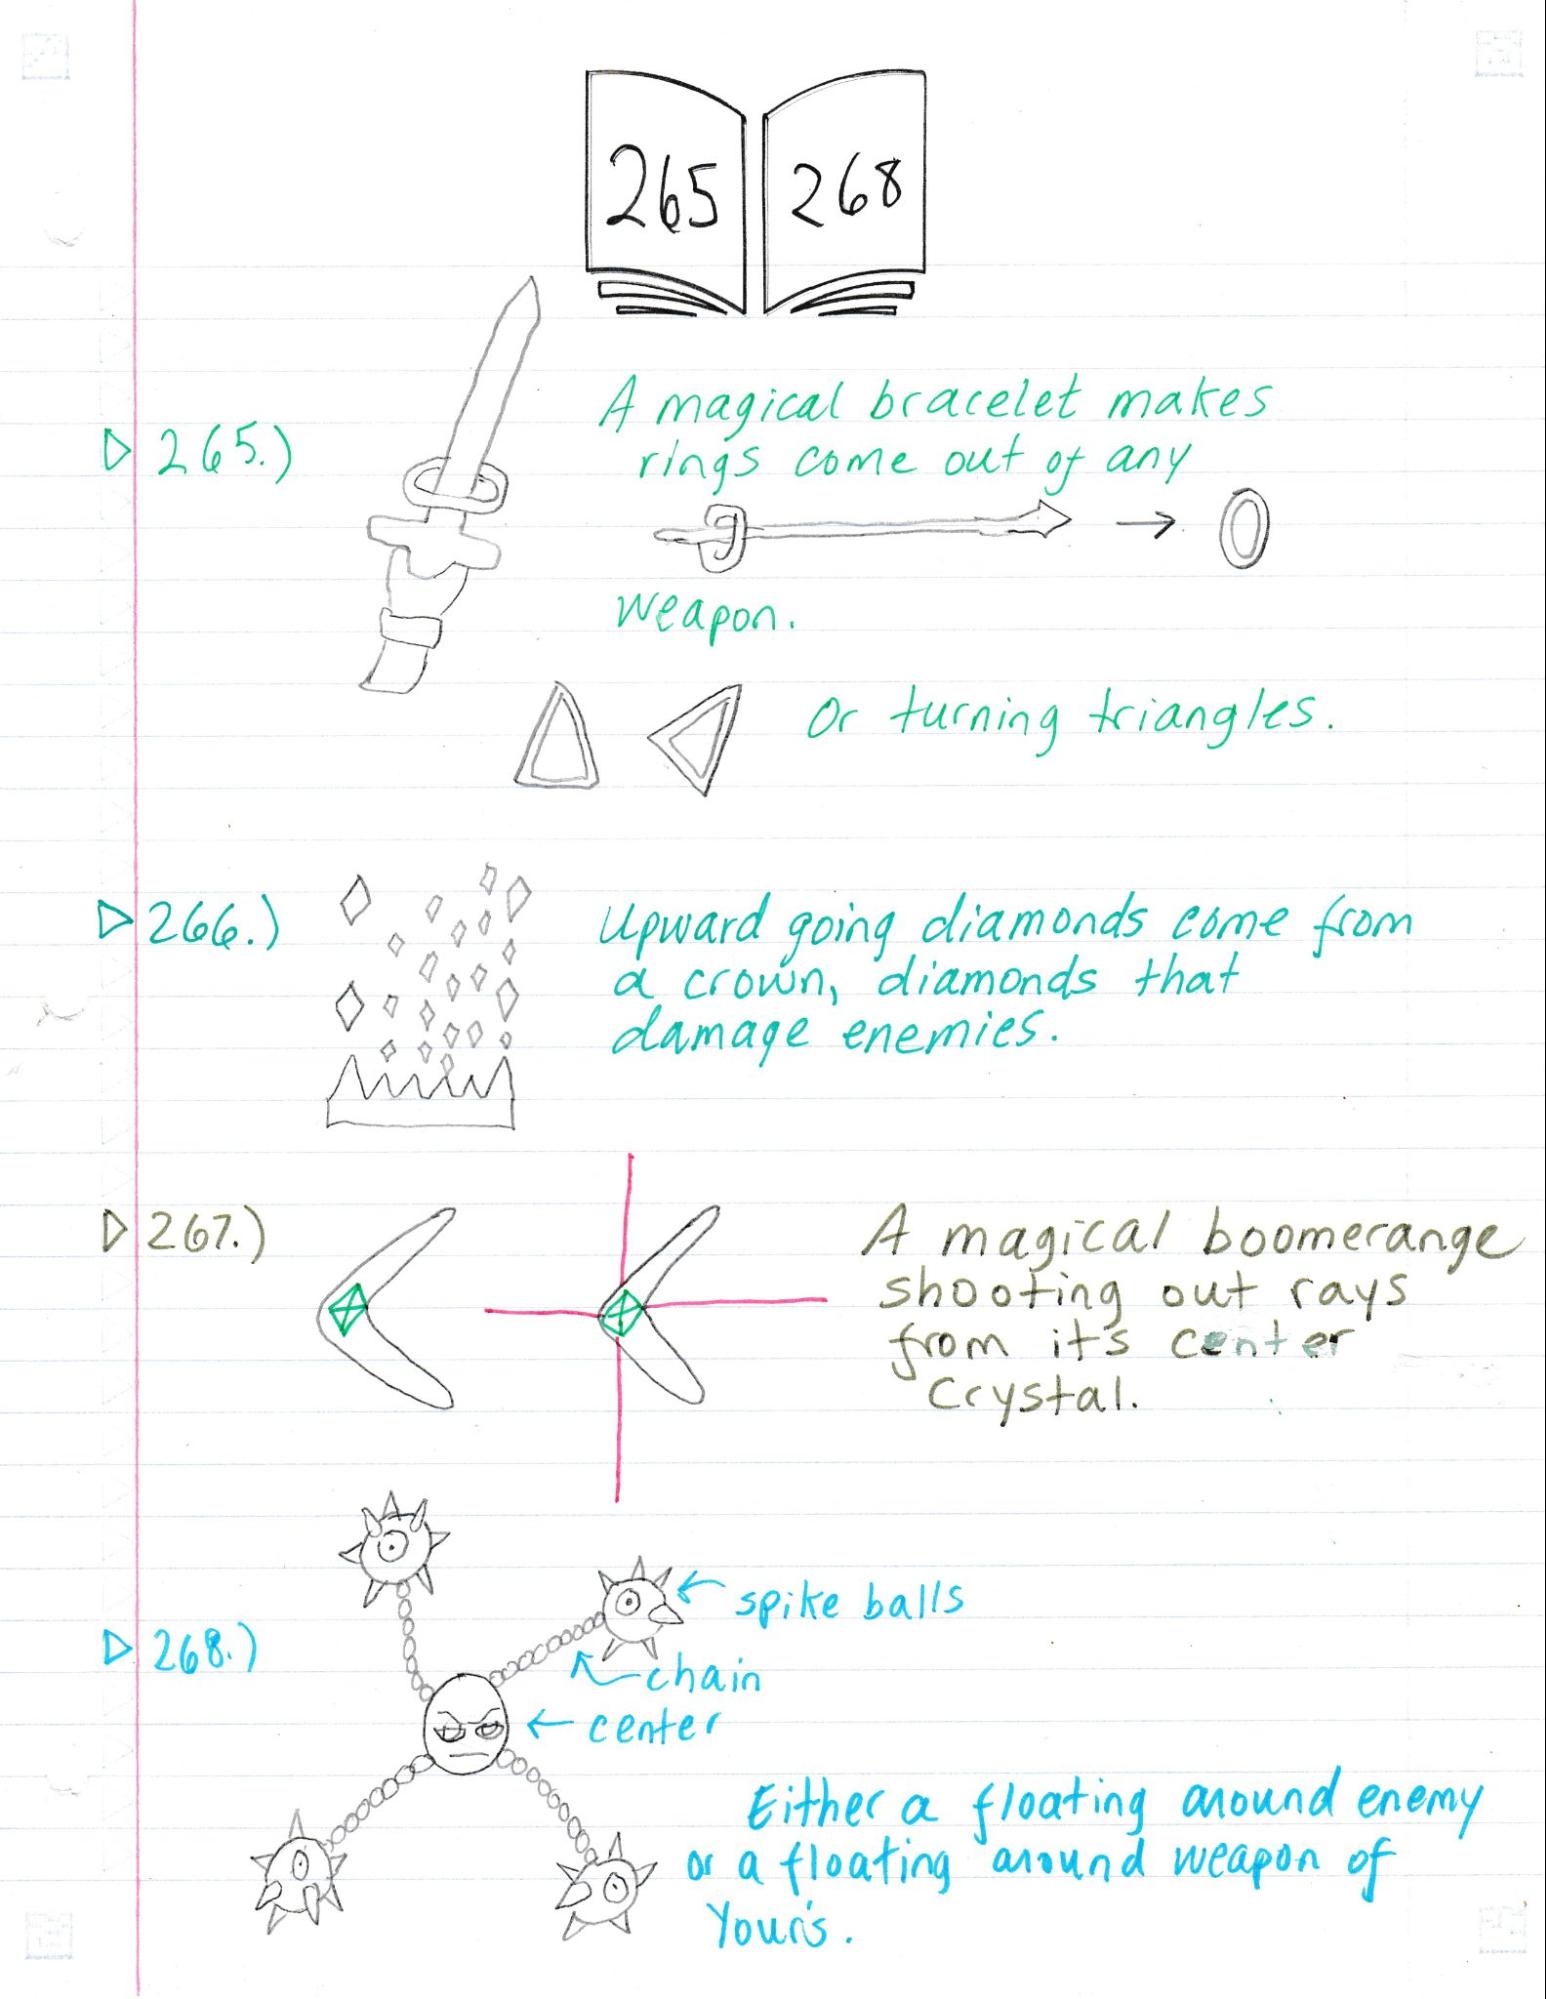 265 268
265.)
A magical bracelet makes
rings come out of any
weapon.
Or turning triangles.
266.)
Upward going diamonds come from
a crown, diamonds that
damage enemies.
267.)
A magical boomerange
shooting out rays
from it's center
Crystal.
268.)
spike balls
chain
center
Either a floating around enemy
or a floating around weapon of
Your's.